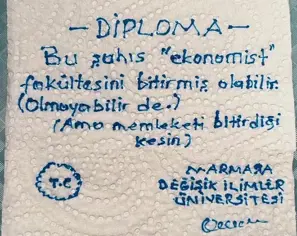 — DİPLOMA —
Bu şahıs "ekonomist"
fakültesini bitirmiş olabilir.
(Olmayabilir de.)
(Ama memleketi bitirdiği
kesin)
T.C
MARMARA
DEĞİŞİK İLİMLER
ÜNİVERSİTESİ